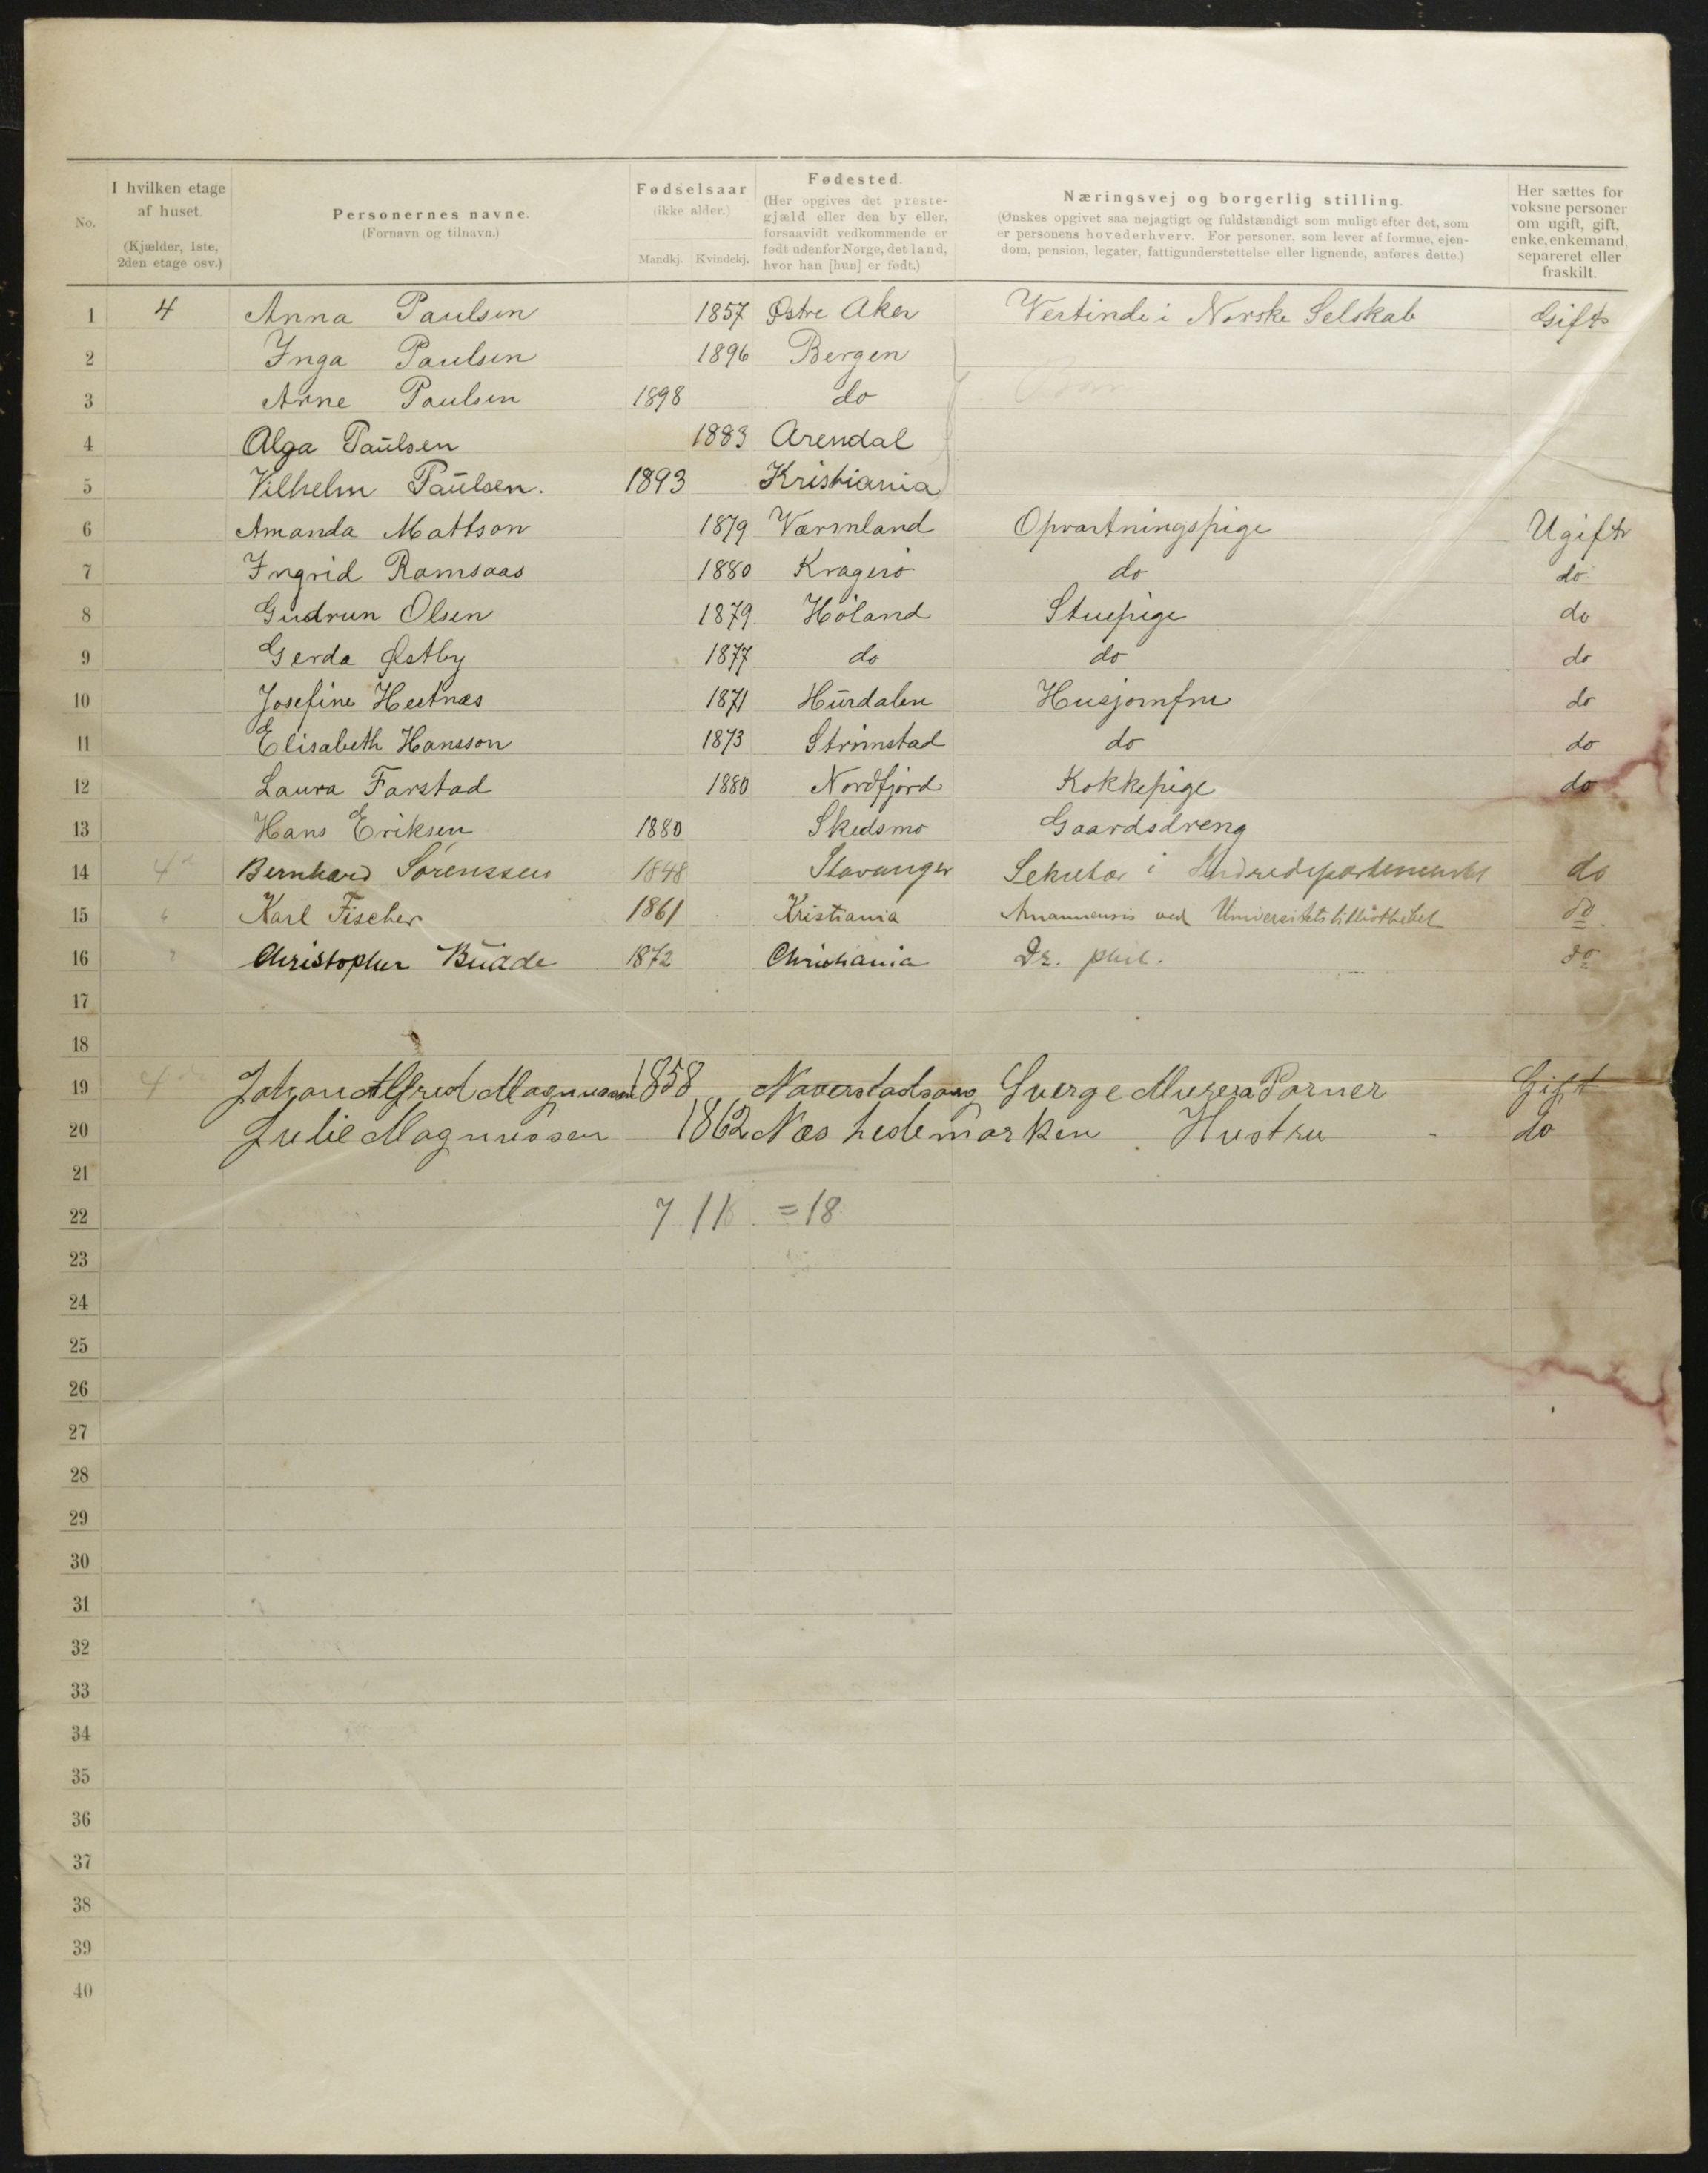 No. | I hvilken etage af huset. (Kjælder, 1ste, 2den etage osv.) | Personernes navne. (Fornavn og tilnavn.) | Fødselsaar (ikke alder.) Mandkj. Kvindekj. | Fødested. (Her opgives det prestegjæld eller den by eller, forsaavidt vedkommende er født udenfor Norge, det land, hvor han [hun] er født.) | Næringsvej og borgerlig stilling. (Ønskes opgivet saa nøjagtigt og fuldstændigt som muligt efter det, som er personens hovederhverv. For personer, som lever af formue, ejendom, pension, legater, fattigunderstøttelse eller lignende, anføres dette.) | Her sættes for voksne personer om ugift, gift, enke, enkemand, separeret eller fraskilt.
1 4 Anna Paulsen 1857 Østre Aker Vertinde i Norske Selskab Gift
2 Inga Paulsen 1896 Bergen
3 Arne Paulsen 1898 do Barn
4 Alga Paulsen 1883 Arendal
5 Vilhelm Paulsen. 1893 Kristiania
6 Amanda Mattson 1879 Værmland Opvartningspige Ugift
7 Ingrid Ramsaas 1880 Kragerø do do
8 Gudrun Olsen 1879 Høland Stuepige do
9 Gerda Østby 1877 do do do
10 Josefine Hestnæs 1871 Hurdalen Husjomfru do
11 Elisabeth Hansson 1873 Strømstad do do
12 Laura Farstad 1880 Nordfjord Kokkepige do
13 Hans Eriksen 1880 Skedsmo Gaardsdreng
14 4 Bernhard Sørenssen 1848 Stavanger Sekretær i do
15 Karl Fischer 1861 Kristiania Amanuensis ved Universitetsbibliotheket do.
16 Christopher 1872 Christiania Dr. phil. do
17
18
19 4 Johan Alfred Magnussen 1858 Sverge Gift
20 Julie Magnussen 1862 Næs hedemarken Hustru do
21
22 7 11 = 18
23
24
25
26
27
28
29
30
31
32
33
34
35
36
37
38
39
40